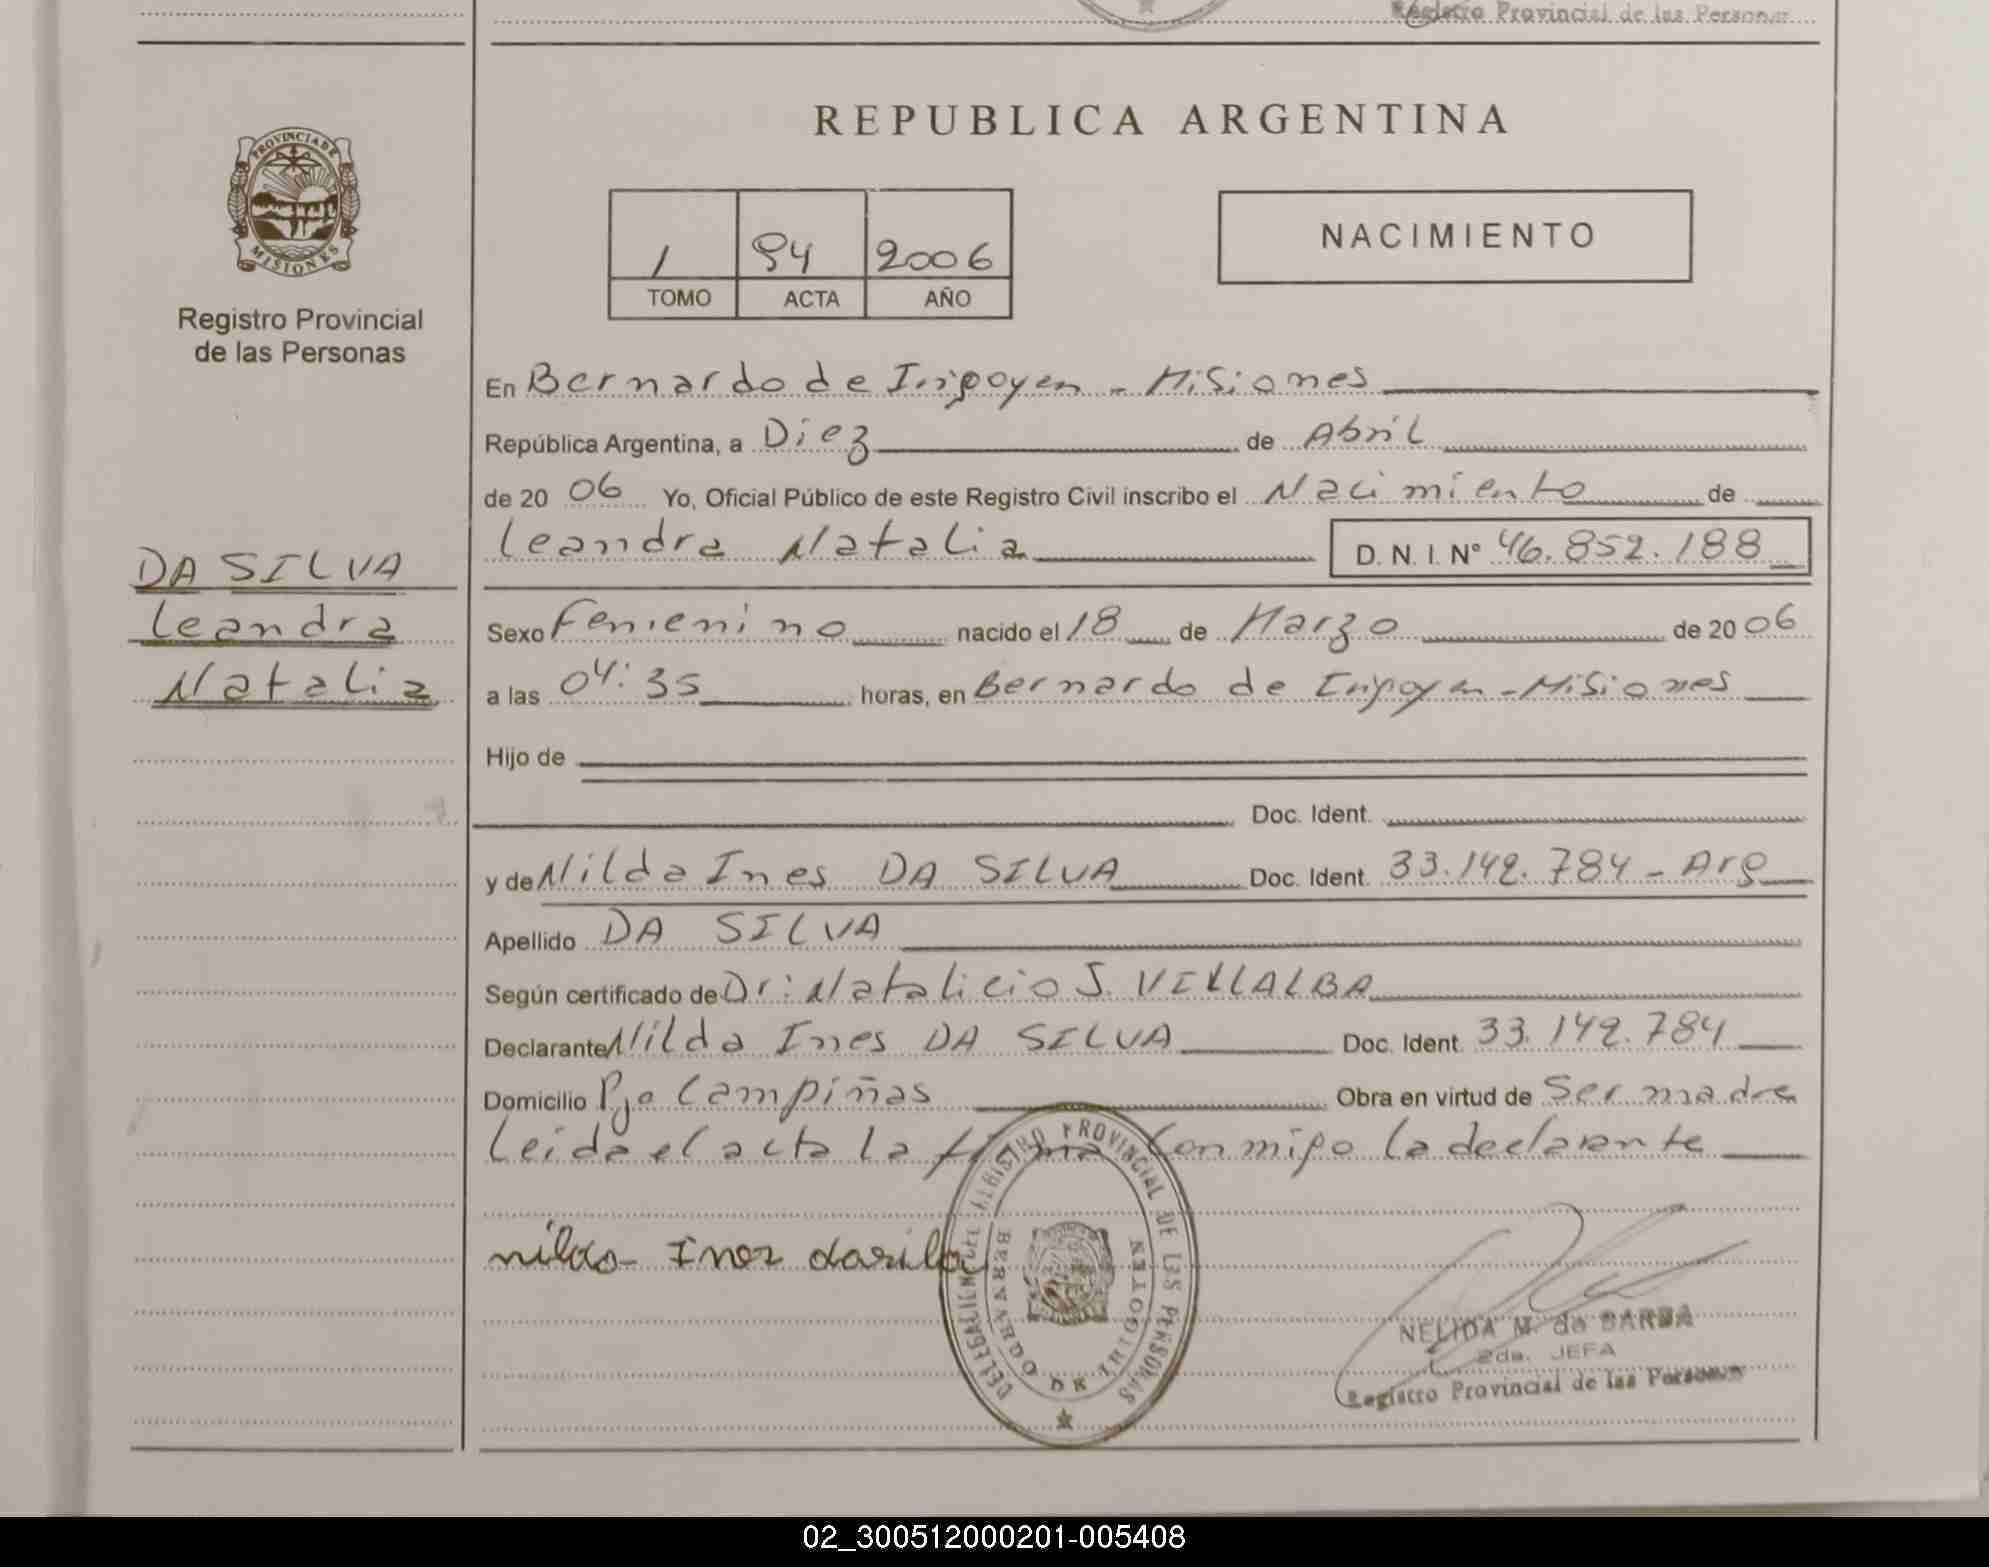 Registro Provincial de las Personas
REPUBLICA ARGENTINA
PROVINCIA DE
MISIONES
Registro Provincial
de las Personas
1 94 2006
TOMO ACTA AÑO
NACIMIENTO
En Bernardo de Irigoyen - Misiones
República Argentina, a Diez de Abril
de 20 06 Yo, Oficial Público de este Registro Civil inscribo el Nacimiento de
Leandra Natalia D. N. I. N° 46.852.188
DA SILVA
Leandra
Natalia
Sexo Femenino nacido el 18 de Marzo de 20 06
a las 04:35 horas, en Bernardo de Irigoyen - Misiones
Hijo de
Doc. Ident.
y de Nilda Ines DA SILVA Doc. Ident. 33.142.784 - Arg
Apellido DA SILVA
Según certificado de Dr: Natalicio J. VILLALBA
Declarante Nilda Ines DA SILVA Doc. Ident. 33.142.784
Domicilio Pje Campiñas Obra en virtud de Ser madre
Leida el acta la firma Conmigo la declarante
nilda Inez dasilba
DELEGACION DEL REGISTRO PROVINCIAL DE LAS PERSONAS
BERNARDO DE IRIGOYEN
NELIDA M. de BARBA
2da. JEFA
Registro Provincial de las Personas
02_300512000201-005408